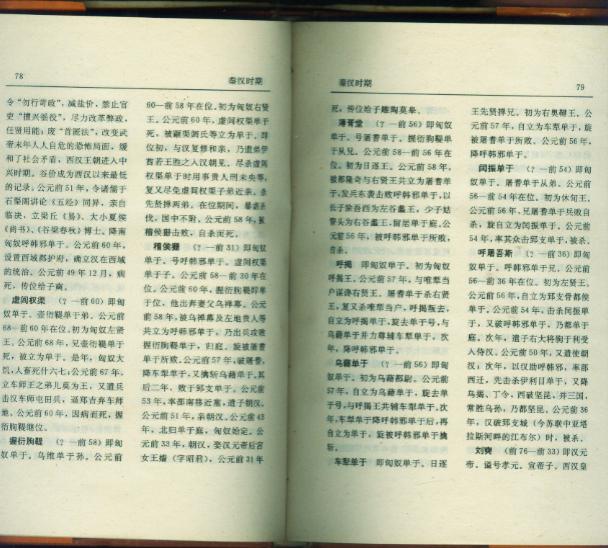 78
秦汉时期
令“勿行苛政”，减盐价，禁止官
吏“擅兴徭役”，尽力改革弊政，
任贤用能；废“首匿法”，改变武
帝末年人人自危的恐怖局面，缓
和了社会矛盾，西汉王朝进入中
兴时期。谷价成为西汉以来最低
的记录。公元前51年，令诸儒于
石渠阁讲论《五经》同异，亲自
临决，立梁丘《易》、大小夏侯
《尚书》、《谷梁春秋》博士。降南
匈奴呼韩邪单于。公元前60年，
设置西域都护府，确立汉在西域
的统治。公元前49年12月，病
死，传位给子商。
虚闾权渠 （？—前60）即匈
奴单于。壶衍鞮单于弟。公元前
68—前60年在位。初为匈奴左贤
王。公元前68年，兄壶衍鞮单于
死，被立为单于。是年，匈奴大
饥，人畜死什六七。公元前67年，
立车师王之弟兜莫为王，又遣兵
击汉车师屯田兵，逼郑吉弃车师
地。公元前60年，因病而死，握
衍朐鞮继位。
握衍朐鞮 （？—前58）即匈
奴单于。乌维单于孙。公元前
60—前58年在位。初为匈奴右贤
王。公元前60年，虚闾权渠单于
死，被颛渠阏氏等立为单于。即
位初，与汉复修和亲，乃遣弟伊
酋若王胜之入汉朝见。尽杀虚闾
权渠单于时用事贵人刑未央等，
复又尽免虚闾权渠子弟近亲。杀
先贤掸两弟。在位期间，暴虐杀
伐，国中不附。公元前58年，被
稽侯狦击败，自杀而死。
稽侯狦 （？—前31）即匈奴
单于。号呼韩邪单于。虚闾权渠
单于子。公元前58—前30年在
位。公元前60年，握衍朐鞮即单
于位，他出奔妻父乌禅幕。公元
前58年，被乌禅幕及左地贵人等
共立为呼韩邪单于。乃出兵攻败
握衍朐鞮单于，归庭。旋被屠耆
单于所败。公元前57年，破屠耆，
降车犁单于，又擒斩乌藉单于。其
后二年，败于郅支单于。公元前
53年，率部南移近塞，遣子朝汉。
公元前51年，亲朝汉。公元前43
年，北归单于庭，匈奴始定。公
元前33年，朝汉，娶汉元帝后宫
女王嫱（字昭君）。公元前31年
秦汉时期
79
死，传位给子雕陶莫皋。
薄胥堂 （？—前56）即匈奴
单于。号屠耆单于。握衍朐鞮单
于从兄。公元前58—前56年在
位。初为日逐王。公元前58年，
被都隆奇与右贤王共立为屠耆单
于，发兵东袭击败呼韩邪单于，以
长子涂吾西为左谷蠡王，少子姑
瞀头为右谷蠡王，留居单于庭。公
元前56年，被呼韩邪单于所败，
自杀。
呼揭 即匈奴单于。初为匈奴
呼揭王。公元前57年，与唯犁当
户谋谗右贤王。屠耆单于杀右贤
王，复又杀唯犁当户，呼揭叛去，
自立为呼揭单于。旋去单于号，与
乌藉单于并力尊辅车犁单于。次
年，降呼韩邪单于。
乌藉单于 （？—前56）即匈
奴单于。初为乌藉都尉。公元前
57年，自立为乌藉单于，旋去单
于号，与呼揭王共辅车犁单于。次
年，车犁单于降呼韩邪单于后，再
自立为单于，旋被呼韩邪单于擒
斩。
车犁单于 即匈奴单于。日逐
王先贤掸兄。初为右奥鞬王。公
元前57年，自立为车犁单于，旋
被屠耆单于所败。公元前56年，
降呼韩邪单于。
闰振单于 （？—前54）即匈
奴单于。屠耆单于从弟。公元前
56—前54年在位。初为休旬王。
公元前56年，兄屠耆单于兵败自
杀，旋自立为闰振单于。公元前
54年，率其众击郅支单于，被杀。
呼屠吾斯 （？—前36）即匈
奴单于。呼韩邪单于兄。公元前
56—前36年在位。初为左贤王。
公元前56年，自立为郅支骨都侯
单于。公元前54年，击杀闰振单
于，又破呼韩邪单于，乃都单于
庭。次年，遣子右大将驹于利受
入侍汉。公元前50年，又遣使朝
汉；次年，以汉助呼韩邪，率部
西迁，先击杀伊利目单于，又降
乌揭、丁令，西破坚昆，并三国，
常胜乌孙，乃都坚昆。公元前36
年，汉破郅支城（今苏联中亚塔
拉斯河畔的江布尔）时，被杀。
刘奭 （前76—前33）即汉元
帝。谥号孝元。宣帝子。西汉皇